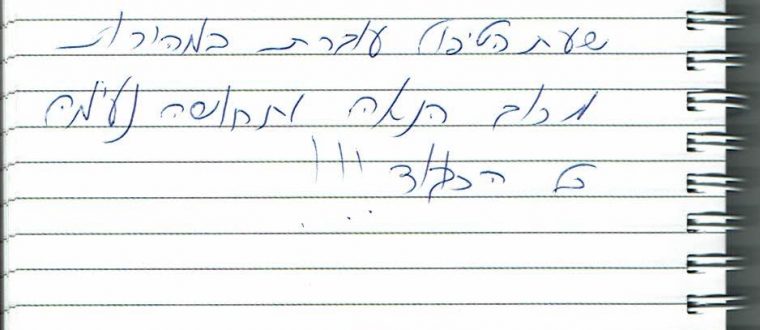 שעת הטיפול עוברת במהירות
מרוב הנאה ותחושה נעימה
כל הכבוד !!!
...